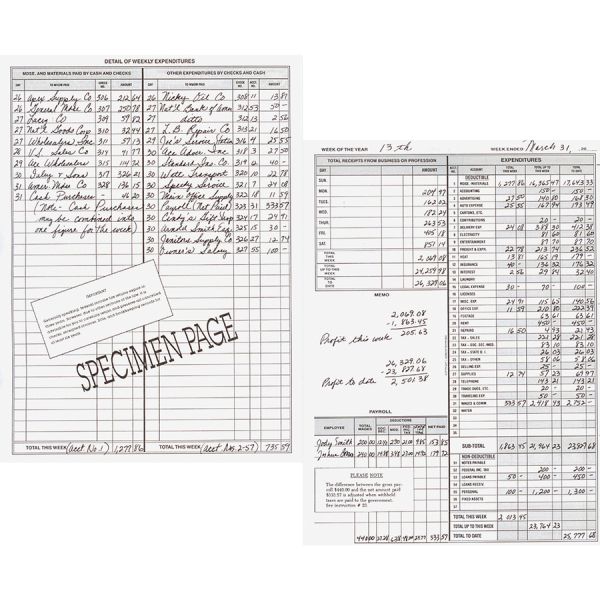 DETAIL OF WEEKLY EXPENDITURES
MDSE. AND MATERIALS PAID BY CASH AND CHECKS
OTHER EXPENDITURES BY CHECKS AND CASH
DAY TO WHOM PAID CHECK NO. AMOUNT
DAY TO WHOM PAID CHECK NO. ACCT. NO. AMOUNT
26 Apex Supply Co 306 212 64
26 General Mdse Co 307 250 78
27 Lacy Co 309 59 82
27 Nat'l Goods Corp 310 32 44
27 Wholesalers Inc 311 57 13
28 U.S. Sales Co 314 41 77
29 Ace Wholesalers 315 114 72
30 & Sons 317 326 21
31 Mdse Co 328 136 15
31 Cash Purchases 46 20
(Note - Cash Purchases
may be combined into
one figure for the week)
26 Nicky Oil Co 308 11 13 81
27 Nat'l Bank of 312 53 50 -
27 ditto 312 13 2 56
27 L.B. Repair Co 313 21 16 50
27 Joe's Service Station 316 4 25 55
30 Ace Adver. Inc. 318 3 27 50
30 Standard Ins. Co. 319 12 40 -
30 Transport 320 10 22 78
30 Speedy Service 321 7 24 08
30 Main Office Supply 322 18 11 59
30 Payroll (Net Paid) 323 31 533 57
30 Cindy's Gift Shop 324 17 24 91
30 Smith Esq. 325 15 30 -
30 Janitors Supply Co 326 27 12 74
30 Owner's Salary 327 55 100 -
IMPORTANT
SPECIMEN PAGE
TOTAL THIS WEEK (Acct No. 1) 1,277 86
TOTAL THIS WEEK (Acct Nos. 2-57) 735 59
WEEK OF THE YEAR 13th WEEK ENDED March 31, 20
TOTAL RECEIPTS FROM BUSINESS OR PROFESSION
DAY AMOUNT
SUN.
MON. 209 97
TUES. 162 02
WED. 182 24
THUR. 263 53
FRI. 405 18
SAT. 851 14
TOTAL THIS WEEK 2,069 08
TOTAL UP TO THIS WEEK 24,259 98
TOTAL TO DATE 26,329 06
MEMO
2,069.08
- 1,863.45
Profit this week 205.63
26,329.06
- 23,827.68
Profit to date 2,501.38
PAYROLL
EMPLOYEE TOTAL WAGES DEDUCTIONS NET PAID
Jody Smith 200 00 153 85
240 00 179 72
PLEASE NOTE
The difference between the gross pay-
roll $440.00 and the net amount paid
$533.57 is adjusted when withheld
taxes are paid to the government.
See instruction # 23.
440 00 533 57
EXPENDITURES
ACCT. NO. ACCOUNT TOTAL THIS WEEK TOTAL UP TO THIS WEEK TOTAL TO DATE
DEDUCTIBLE
1 MDSE. - MATERIALS 1,277 86 16,365 47 17,643 33
2 ACCOUNTING 150 - 150 -
3 ADVERTISING 27 50 140 80 168 30
4 AUTO EXPENSE 25 55 167 94 193 49
5 CARTONS, ETC.
6 CONTRIBUTIONS 20 - 20 -
7 DELIVERY EXP. 24 08 388 30 412 38
8 ELECTRICITY 81 60 81 60
9 ENTERTAINMENT 87 70 87 70
10 FREIGHT & EXPR. 22 78 213 74 236 52
11 HEAT 13 81 165 19 179 -
12 INSURANCE 40 - 136 32 176 32
13 INTEREST 2 56 29 84 32 40
14 LAUNDRY
15 LEGAL EXPENSE 30 - 70 - 100 -
16 LICENSES
17 MISC. EXP. 24 91 115 65 140 56
18 OFFICE EXP. 11 59 210 80 222 39
19 POSTAGE 63 61 63 61
20 RENT 450 - 450 -
21 REPAIRS 16 50 4 93 21 43
22 TAX - SALES 221 28 221 28
23 TAX - SOC. SEC. 83 10 83 10
24 TAX - STATE U. I. 26 03 26 03
25 TAX - OTHER 58 06 58 06
26 SELLING EXP. 25 - 25 -
27 SUPPLIES 12 74 57 23 69 97
28 TELEPHONE 143 21 143 21
29 TRADE DUES, ETC. 20 - 20 -
30 TRAVELING EXP. 50 - 50 -
31 WAGES & COMM. 533 57 2,218 43 2,752 -
32 WATER
33
34
35
SUB-TOTAL 1,863 45 21,964 23 23,827 68
NON-DEDUCTIBLE
51 NOTES PAYABLE
52 FEDERAL INC. TAX 200 - 200 -
53 LOANS PAYABLE 50 - 400 - 450 -
54 LOANS RECEIV.
55 PERSONAL 100 - 1,200 - 1,300 -
56 FIXED ASSETS
57
TOTAL THIS WEEK 2,013 45
TOTAL UP TO THIS WEEK 23,764 23
TOTAL TO DATE 25,777 68